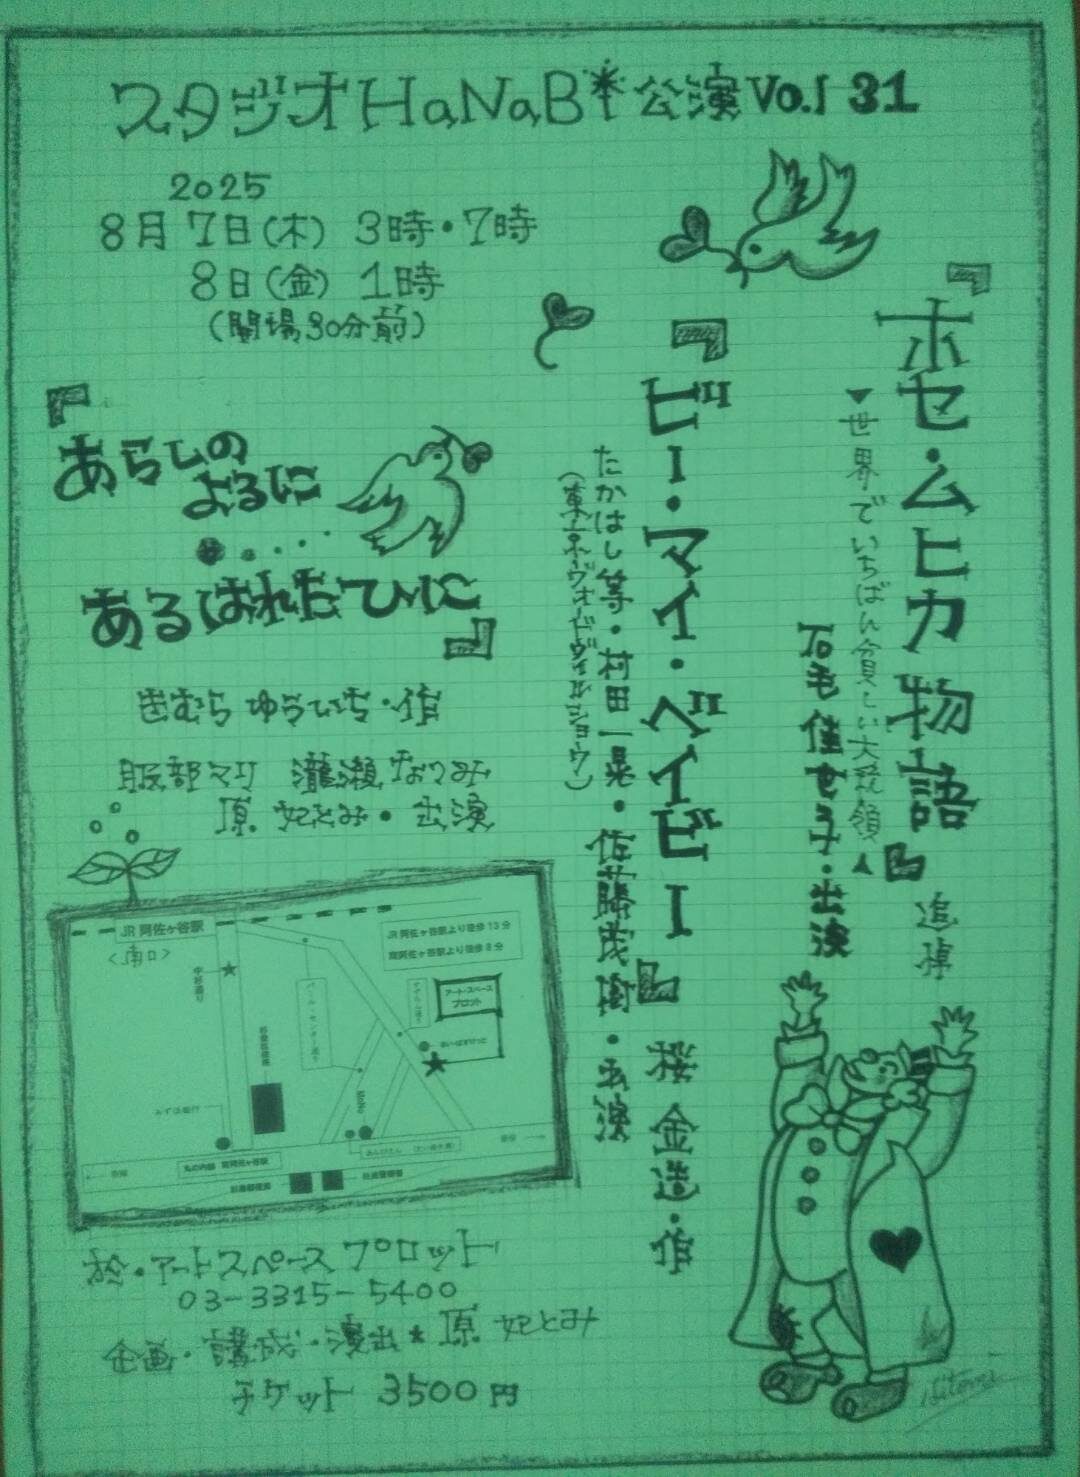 スタジオHaNaBi公演Vo.l 31
2025
8月7日(木) 3時・7時
8日(金) 1時
(開場30分前)
『ホセ・ムヒカ物語』追悼
▼世界でいちばん貧しい大統領▲
石毛佳世子・出演
『ビー・マイ・ベイビー』桜金造・作
たかはし等・村田一晃・佐藤茂樹・出演
『あらしの
よるに
あるはれたひに』
きむらゆういち・作
服部マリ 瀧瀬なつみ
原 妃とみ・出演
JR 阿佐ヶ谷駅
<南口>
JR 阿佐ヶ谷駅より徒歩 13 分
南阿佐ヶ谷駅より徒歩 8 分
中杉通り
パール・センター通り
すずらん通り
アート・スペース
プロット
杉並区役所
みずほ銀行
丸の内線 南阿佐ヶ谷駅
新宿
於・アートスペースプロット
03-3315-5400
企画・構成・演出★原 妃とみ
チケット 3500円